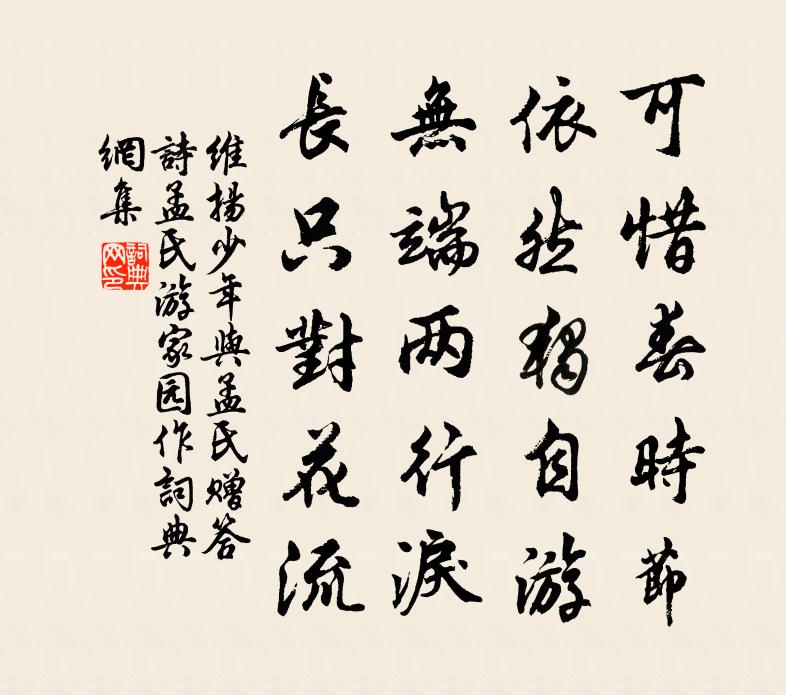 可惜春時節
依然獨自游
無端两行淚
長只對花流
維揚少年與孟氏赠答
詩孟氏游家园作詞典
網集
詞典網印